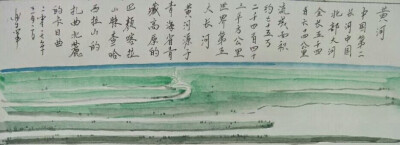 黄河
中国第二
长河中国
北部大河
全长五千四
百六十四公里
流域面积
约七十五万
二千四百四十
三平方公里
世界第五
大长河
黄河源于
青海省青
藏高原的
巴颜喀拉
山脉查哈
西拉山的
扎曲北麓
的卡日曲